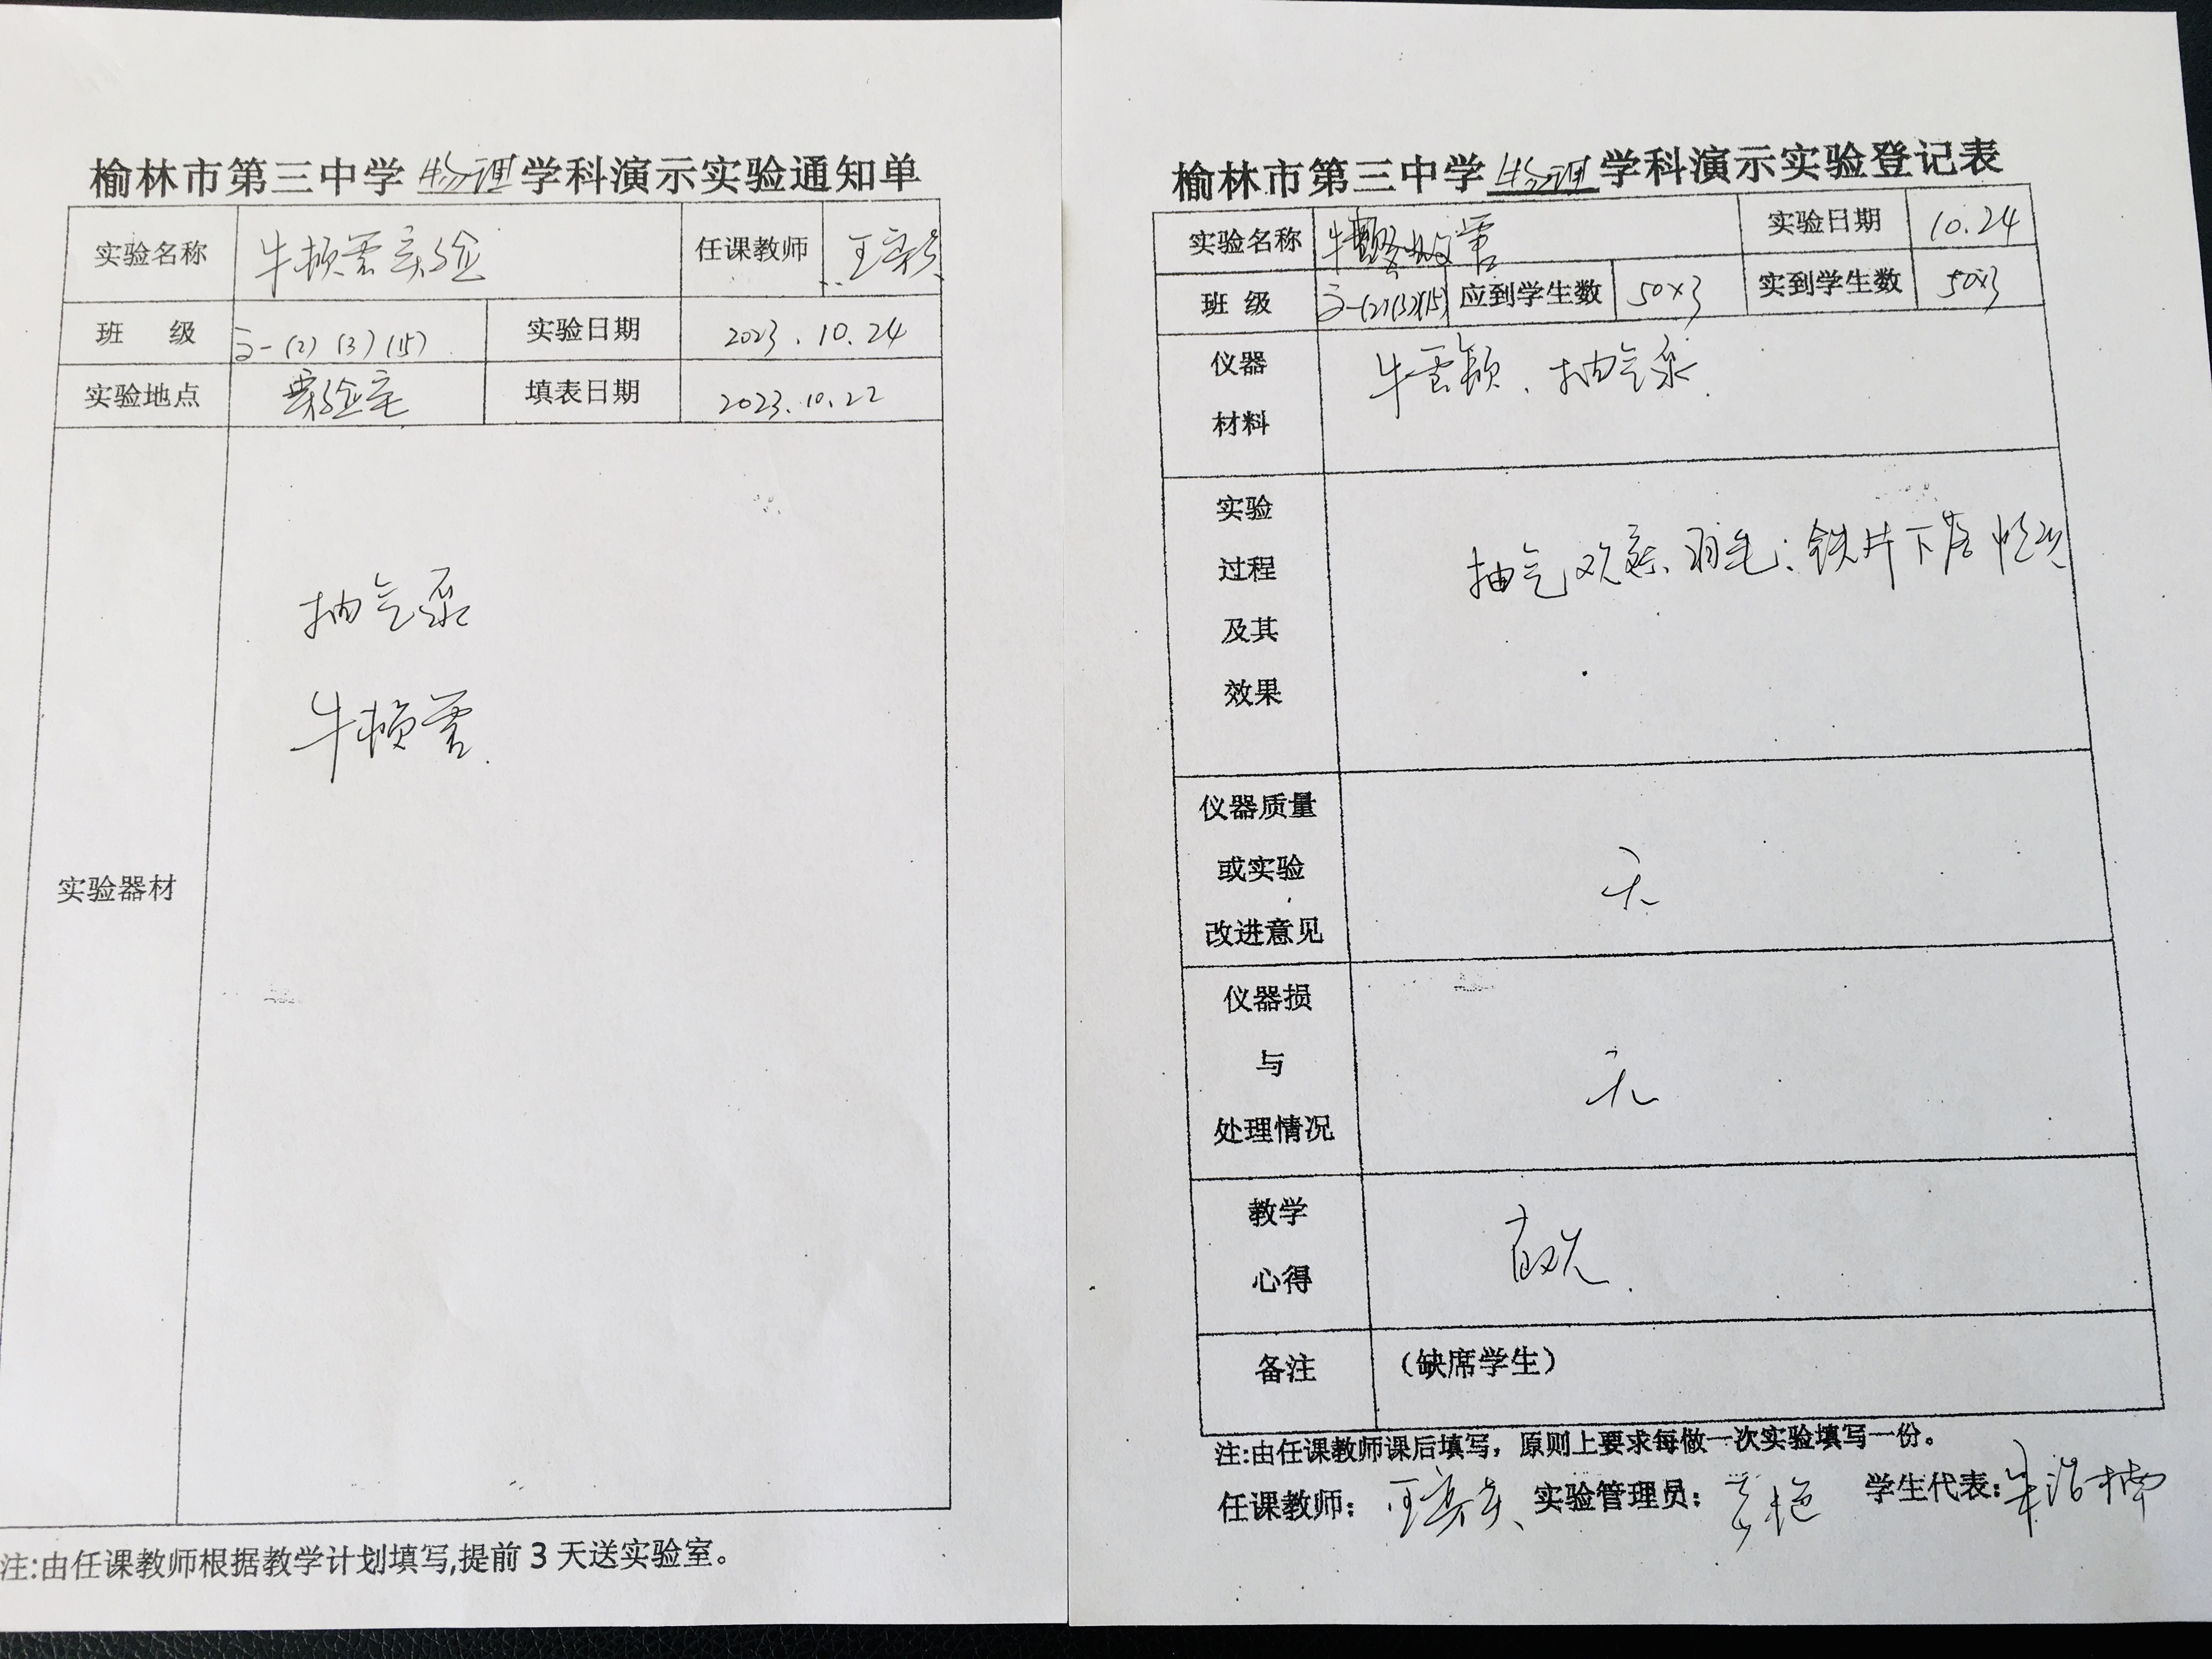 榆林市第三中学 物理 学科演示实验通知单
实验名称 牛顿管实验 任课教师 王
班 级 高一(2)(3)(15) 实验日期 2023.10.24
实验地点 实验室 填表日期 2023.10.22
实验器材
抽气泵
牛顿管
注:由任课教师根据教学计划填写,提前 3 天送实验室。
榆林市第三中学 物理 学科演示实验登记表
实验名称 牛顿管 实验日期 10.24
班 级 高一(2)(3)(15) 应到学生数 50×3 实到学生数 50×3
仪器
材料
牛管顿、抽气泵
实验
过程
及其
效果
抽气观察、羽毛;铁片下落情况
仪器质量
或实验
改进意见
无
仪器损
与
处理情况
无
教学
心得
直观
备注 (缺席学生)
注:由任课教师课后填写,原则上要求每做一次实验填写一份。
任课教师: 王 实验管理员: 艳 学生代表: 朱浩楠